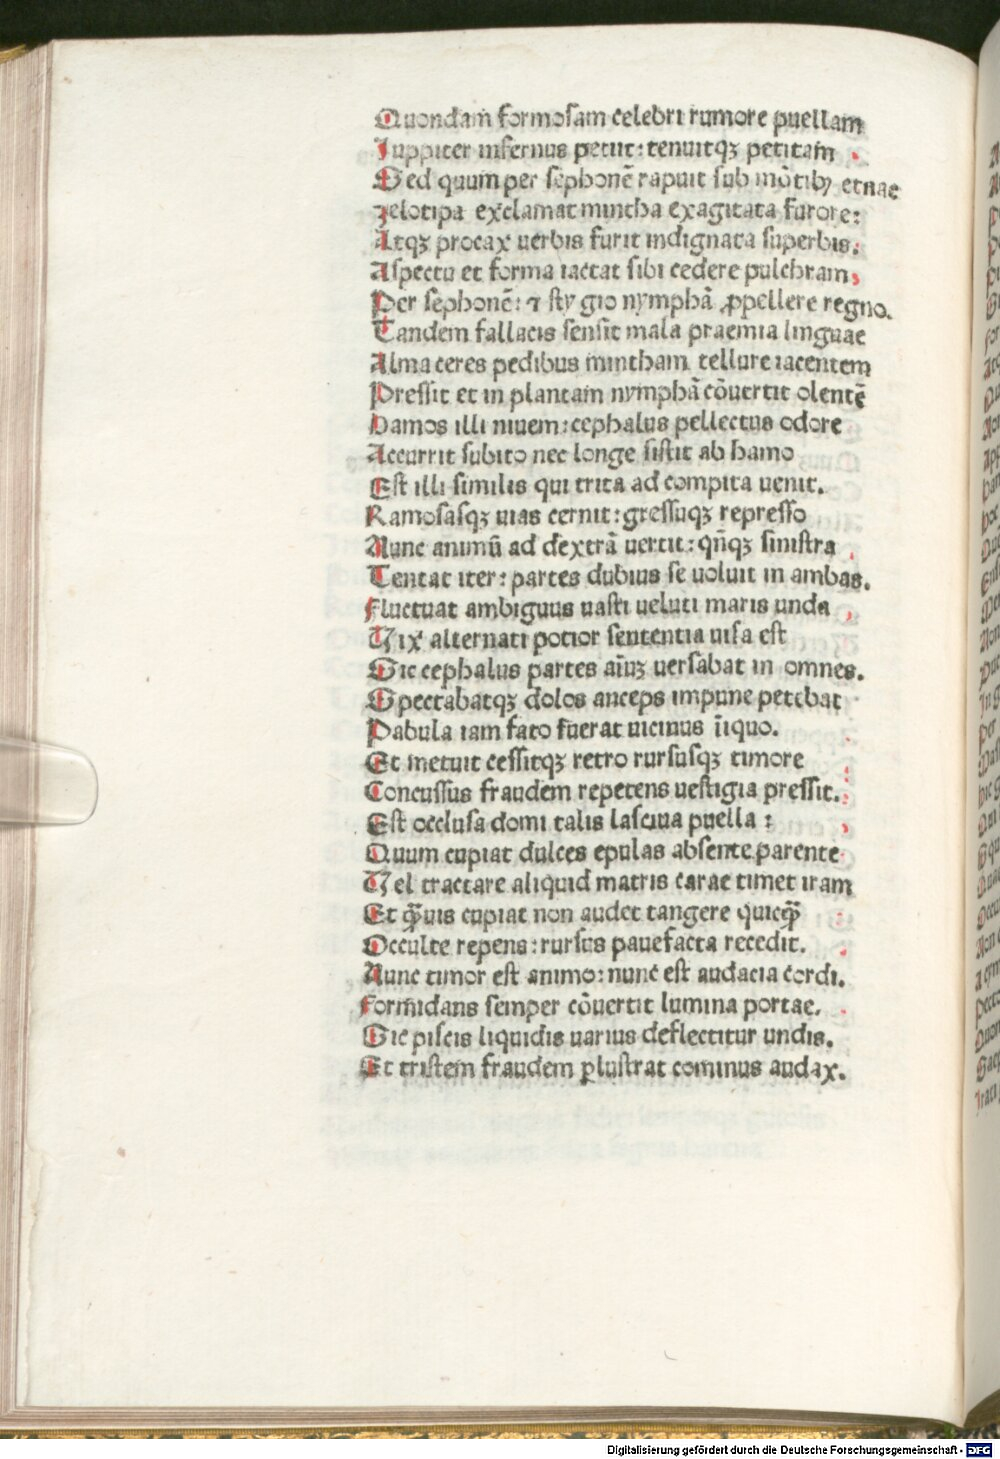 Quondam formosam celebri rumore puellam
Iuppiter infernus petiit: tenuitqꝫ petitam
Sed quum per sephonē rapuit sub mōtibꝰ etnae
zelotipa exclamat mintha exagitata furore:
Atqꝫ procax uerbis furit indignata superbis.
Aspectu et forma iactat sibi cedere pulchram
Per sephonē: ⁊ sty gio nymphā ꝓpellere regno.
Tandem fallacis sensit mala praemia linguae
Alma ceres pedibus mintham tellure iacentem
Pressit et in plantam nymphā cōuertit olentē
Hamos illi niuem: cephalus pellectus odore
Accurrit subito nec longe sistit ab hamo
Est illi similis qui trita ad compita uenit.
Ramosasqꝫ uias cernit: gressuqꝫ represso
Nunc animū ad dextrā uertit: qn̄qꝫ sinistra
Tentat iter: partes dubius se uoluit in ambas.
Fluctuat ambiguus uasti ueluti maris unda
Vix alternati potior sententia uisa est
Sic cephalus partes aīuꝫ uersabat in omnes.
Spectabatqꝫ dolos anceps impune petebat
Pabula iam fato fuerat uicinus īiquo.
Et metuit cessitqꝫ retro rursusqꝫ timore
Concussus fraudem repetens uestigia pressit.
Est occlusa domi talis lasciua puella:
Quum cupiat dulces epulas absente parente
Vel tractare aliquid matris carae timet iram
Et q̄uis cupiat non audet tangere quicq̄
Occulte repens: rursus pauefacta recedit.
Nunc timor est animo: nunc est audacia cordi.
Formīdans semper cōuertit lumina portae.
Sic piscis liquidis uarius deflectitur undis.
Et tristem fraudem ꝑlustrat cominus audax.
Digitalisierung gefördert durch die Deutsche Forschungsgemeinschaft - DFG